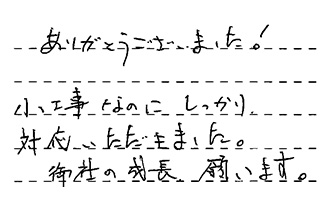 ありがとうございました!
小工事なのにしっかり
対応いただきました。
御社の成長、願います。